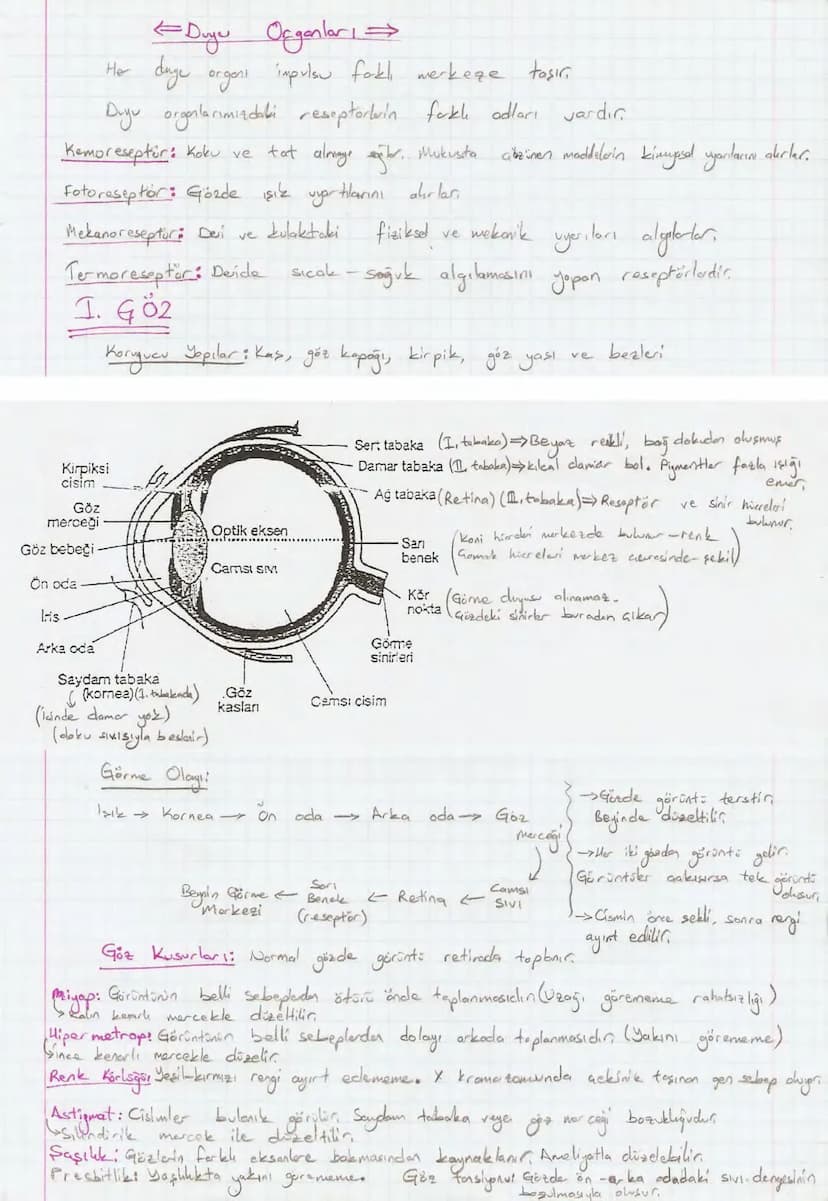 ⇐ Duyu Organları ⇒
Her duyu organı impulsu farklı merkeze taşır.
Duyu organlarımızdaki reseptörlerin farklı adları vardır.
Kemoreseptör: Koku ve tat almayı sağlar. Mukusta çözünen maddelerin kimyasal uyarılarını alırlar.
Fotoreseptör: Gözde ışık uyartılarını alırlar.
Mekanoreseptör: Deri ve kulaktaki fiziksel ve mekanik uyarıları algılarlar.
Termoreseptör: Deride sıcak - soğuk algılamasını yapan reseptörlerdir.
I. GÖZ
Koruyucu Yapılar: Kaş, göz kapağı, kirpik, göz yaşı ve bezleri
Sert tabaka (I. tabaka) ⇒ Beyaz renkli, bağ dokudan oluşmuş
Damar tabaka (II. tabaka) ⇒ kılcal damar bol. Pigmentler fazla ışığı
emer.
Ağ tabaka (Retina) (III. tabaka) ⇒ Reseptör ve sinir hücreleri
bulunur.
Kirpiksi
cisim
Göz
merceği
Göz bebeği
Ön oda
İris
Arka oda
Saydam tabaka
(kornea) (I. tabakada)
(içinde damar yok)
(doku sıvısıyla beslenir)
Optik eksen
Camsı sıvı
Sarı
benek
(Koni hücreleri merkezde bulunur - renk
Çomak hücreleri merkez çevresinde - şekil)
Kör
nokta
(Görme duyusu alınamaz.
Gözdeki sinirler buradan çıkar)
Görme
sinirleri
Göz
kasları
Camsı cisim
Görme Olayı:
Işık → Kornea → Ön oda → Arka oda → Göz
merceği
Camsı
sıvı
← Retina ← Sarı
Benek
(reseptör)
← Beynin Görme
Merkezi
→ Gözde görüntü terstir.
Beyinde düzeltilir.
→ Her iki gözden görüntü gelir.
Görüntüler çakışırsa tek görüntü
oluşur.
→ Cismin önce şekli, sonra rengi
ayırt edilir.
Göz Kusurları: Normal gözde görüntü retinada toplanır.
Miyop: Görüntünün belli sebepleden ötürü önde toplanmasıdır. (Uzağı görememe rahatsızlığı)
↳ Kalın kenarlı mercekle düzeltilir.
Hipermetrop: Görüntünün belli sebeplerden dolayı arkada toplanmasıdır. (Yakını görememe)
↳ ince kenarlı mercekle düzelir.
Renk Körlüğü: Yeşil-kırmızı rengi ayırt edememe. X kromozomunda çekinik taşınan gen sebep oluyor.
Astigmat: Cisimler bulanık görülür. Saydam tabaka veya göz merceği bozukluğudur.
↳ Silindirik mercek ile düzeltilir.
Şaşılık: Gözlerin farklı eksenlere bakmasından kaynaklanır. Ameliyatla düzelebilir.
Presbitlik: Yaşlılıkta yakını görememe. Göz Tansiyonu: Gözde ön-arka odadaki sıvı dengesinin
bozulmasıyla oluşur.